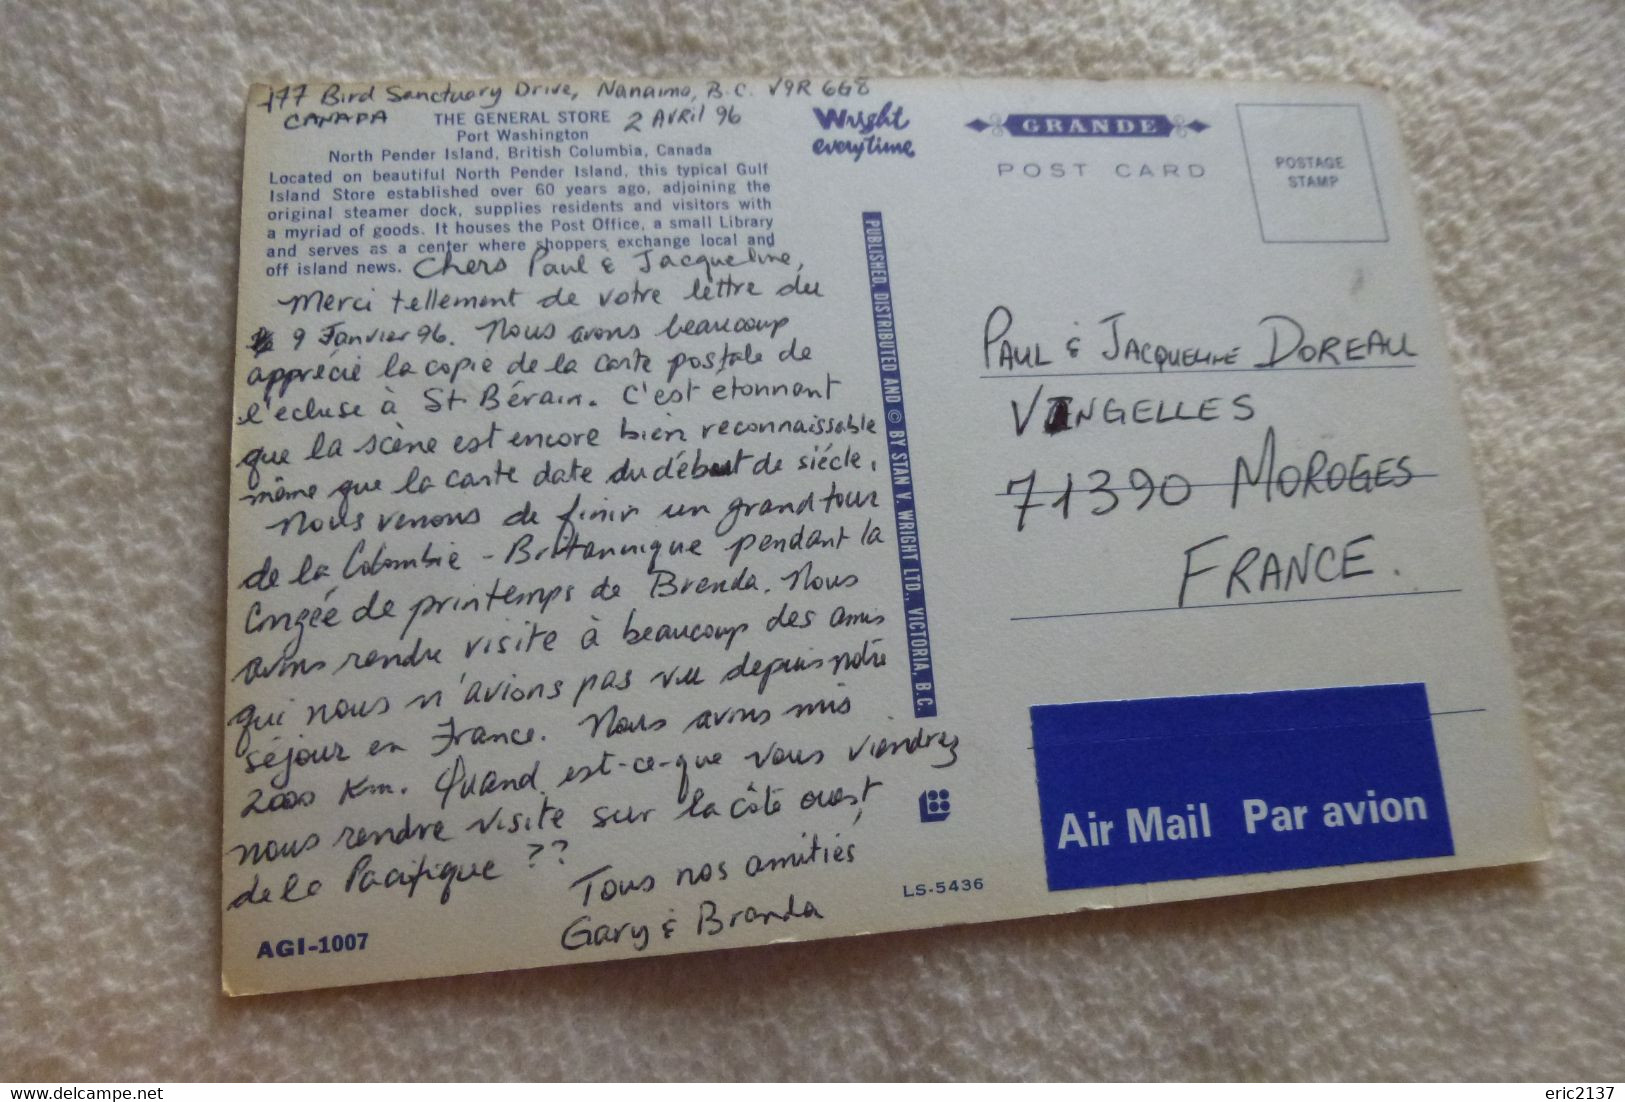 177 Bird Sanctuary Drive, Nanaimo, B.C. V9R 6G8
CANADA
THE GENERAL STORE 2 AVRIL 96
Port Washington
North Pender Island, British Columbia, Canada
Located on beautiful North Pender Island, this typical Gulf
Island Store established over 60 years ago, adjoining the
original steamer dock, supplies residents and visitors with
a myriad of goods. It houses the Post Office, a small Library
and serves as a center where shoppers exchange local and
off island news.
Chers Paul & Jacqueline,
Merci tellement de votre lettre du
9 Janvier 96. Nous avons beaucoup
apprécié la copie de la carte postale de
l'ecluse à St Bérain. C'est etonnant
que la scène est encore bien reconnaissable
même que la carte date du début de siécle.
Nous venons de finir un grand tour
de la Colombie-Britannique pendant la
Congée de printemps de Brenda. Nous
avons rendre visite à beaucoup des amis
qui nous n'avions pas vu depuis nôtre
séjour en France. Nous avons mis
2000 Km. Quand est-ce-que vous viendrez
nous rendre visite sur la côte ouest
de la Pacifique ??
Tous nos amitiés
Gary & Brenda
AGI-1007
Wright
everytime
PUBLISHED, DISTRIBUTED AND © BY STAN V. WRIGHT LTD., VICTORIA, B.C.
LS-5436
GRANDE
POST CARD
POSTAGE
STAMP
PAUL & JACQUELINE DOREAU
VINGELLES
71390 MOROGES
FRANCE.
Air Mail Par avion
delcampe.net
eric2137